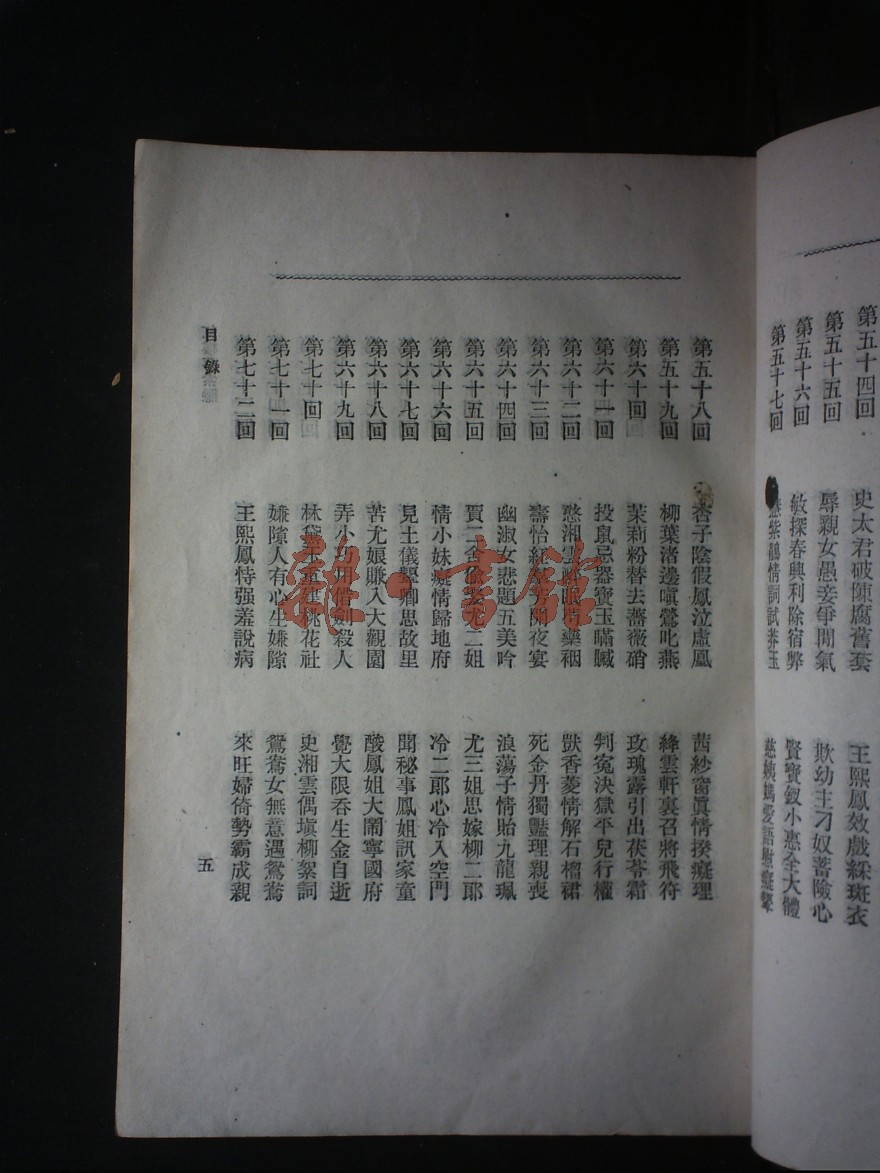 第五十四回 史太君破陳腐舊套 王熙鳳效戲綵斑衣
第五十五回 辱親女愚妾爭閒氣 欺幼主刁奴蓄險心
第五十六回 敏探春興利除宿弊 賢寶釵小惠全大體
第五十七回 紫鵑情詞試莽玉 慈姨媽愛語慰癡顰
第五十八回 杏子陰假鳳泣虛凰 茜紗窗眞情揆癡理
第五十九回 柳葉渚邊嗔鶯叱燕 絳雲軒裏召將飛符
第六十回 茉莉粉替去薔薇硝 玫瑰露引出茯苓霜
第六十一回 投鼠忌器寶玉瞞贓 判寃決獄平兒行權
第六十二回 憨湘雲醉眠芍藥裀 獃香菱情解石榴裙
第六十三回 壽怡紅羣芳開夜宴 死金丹獨豔理親喪
第六十四回 幽淑女悲題五美吟 浪蕩子情貽九龍珮
第六十五回 賈二舍偷娶尤二姐 尤三姐思嫁柳二郞
第六十六回 情小妹癡情歸地府 冷二郞心冷入空門
第六十七回 見土儀顰卿思故里 聞秘事鳳姐訊家童
第六十八回 苦尤娘賺入大觀園 酸鳳姐大鬧寧國府
第六十九回 弄小巧用借劍殺人 覺大限吞生金自逝
第七十回 林黛玉重建桃花社 史湘雲偶塡柳絮詞
第七十一回 嫌隙人有心生嫌隙 鴛鴦女無意遇鴛鴦
第七十二回 王熙鳳恃强羞說病 來旺婦倚勢霸成親
目錄
五
雜·書館